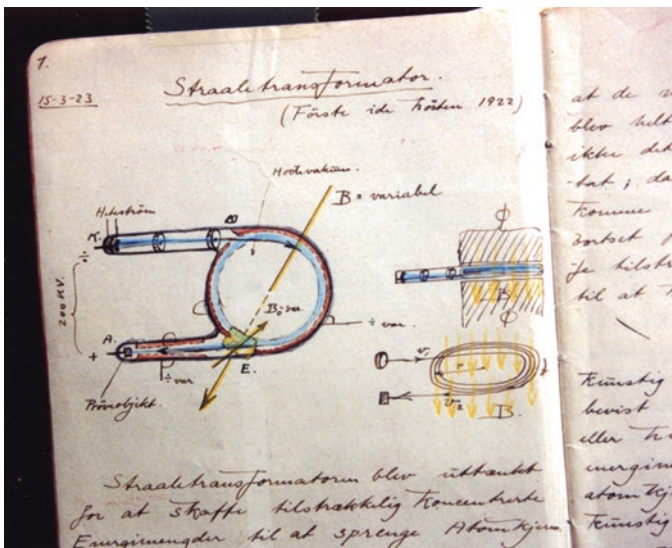 1.
15-3-23
Straaletransformator.
(Förste ide hösten 1922)
Hochvakuum
B = variabel
K.
200 KV.
÷
÷ var.
A.
+
E.
÷ var
Pröveobjekt
Φ
B
Φ
v₁
r
v₂
B.
Straaletransformatoren blev uttænkt
for at skaffe tilstrækkelig koncentrerte
Energimengder til at sprenge Atomkjern
at de
blev helt
ikke det
-tat; da
komme
bortset
je tilst
til at
Kunstig
bevist
eller
energi
atomkj
Kunstig